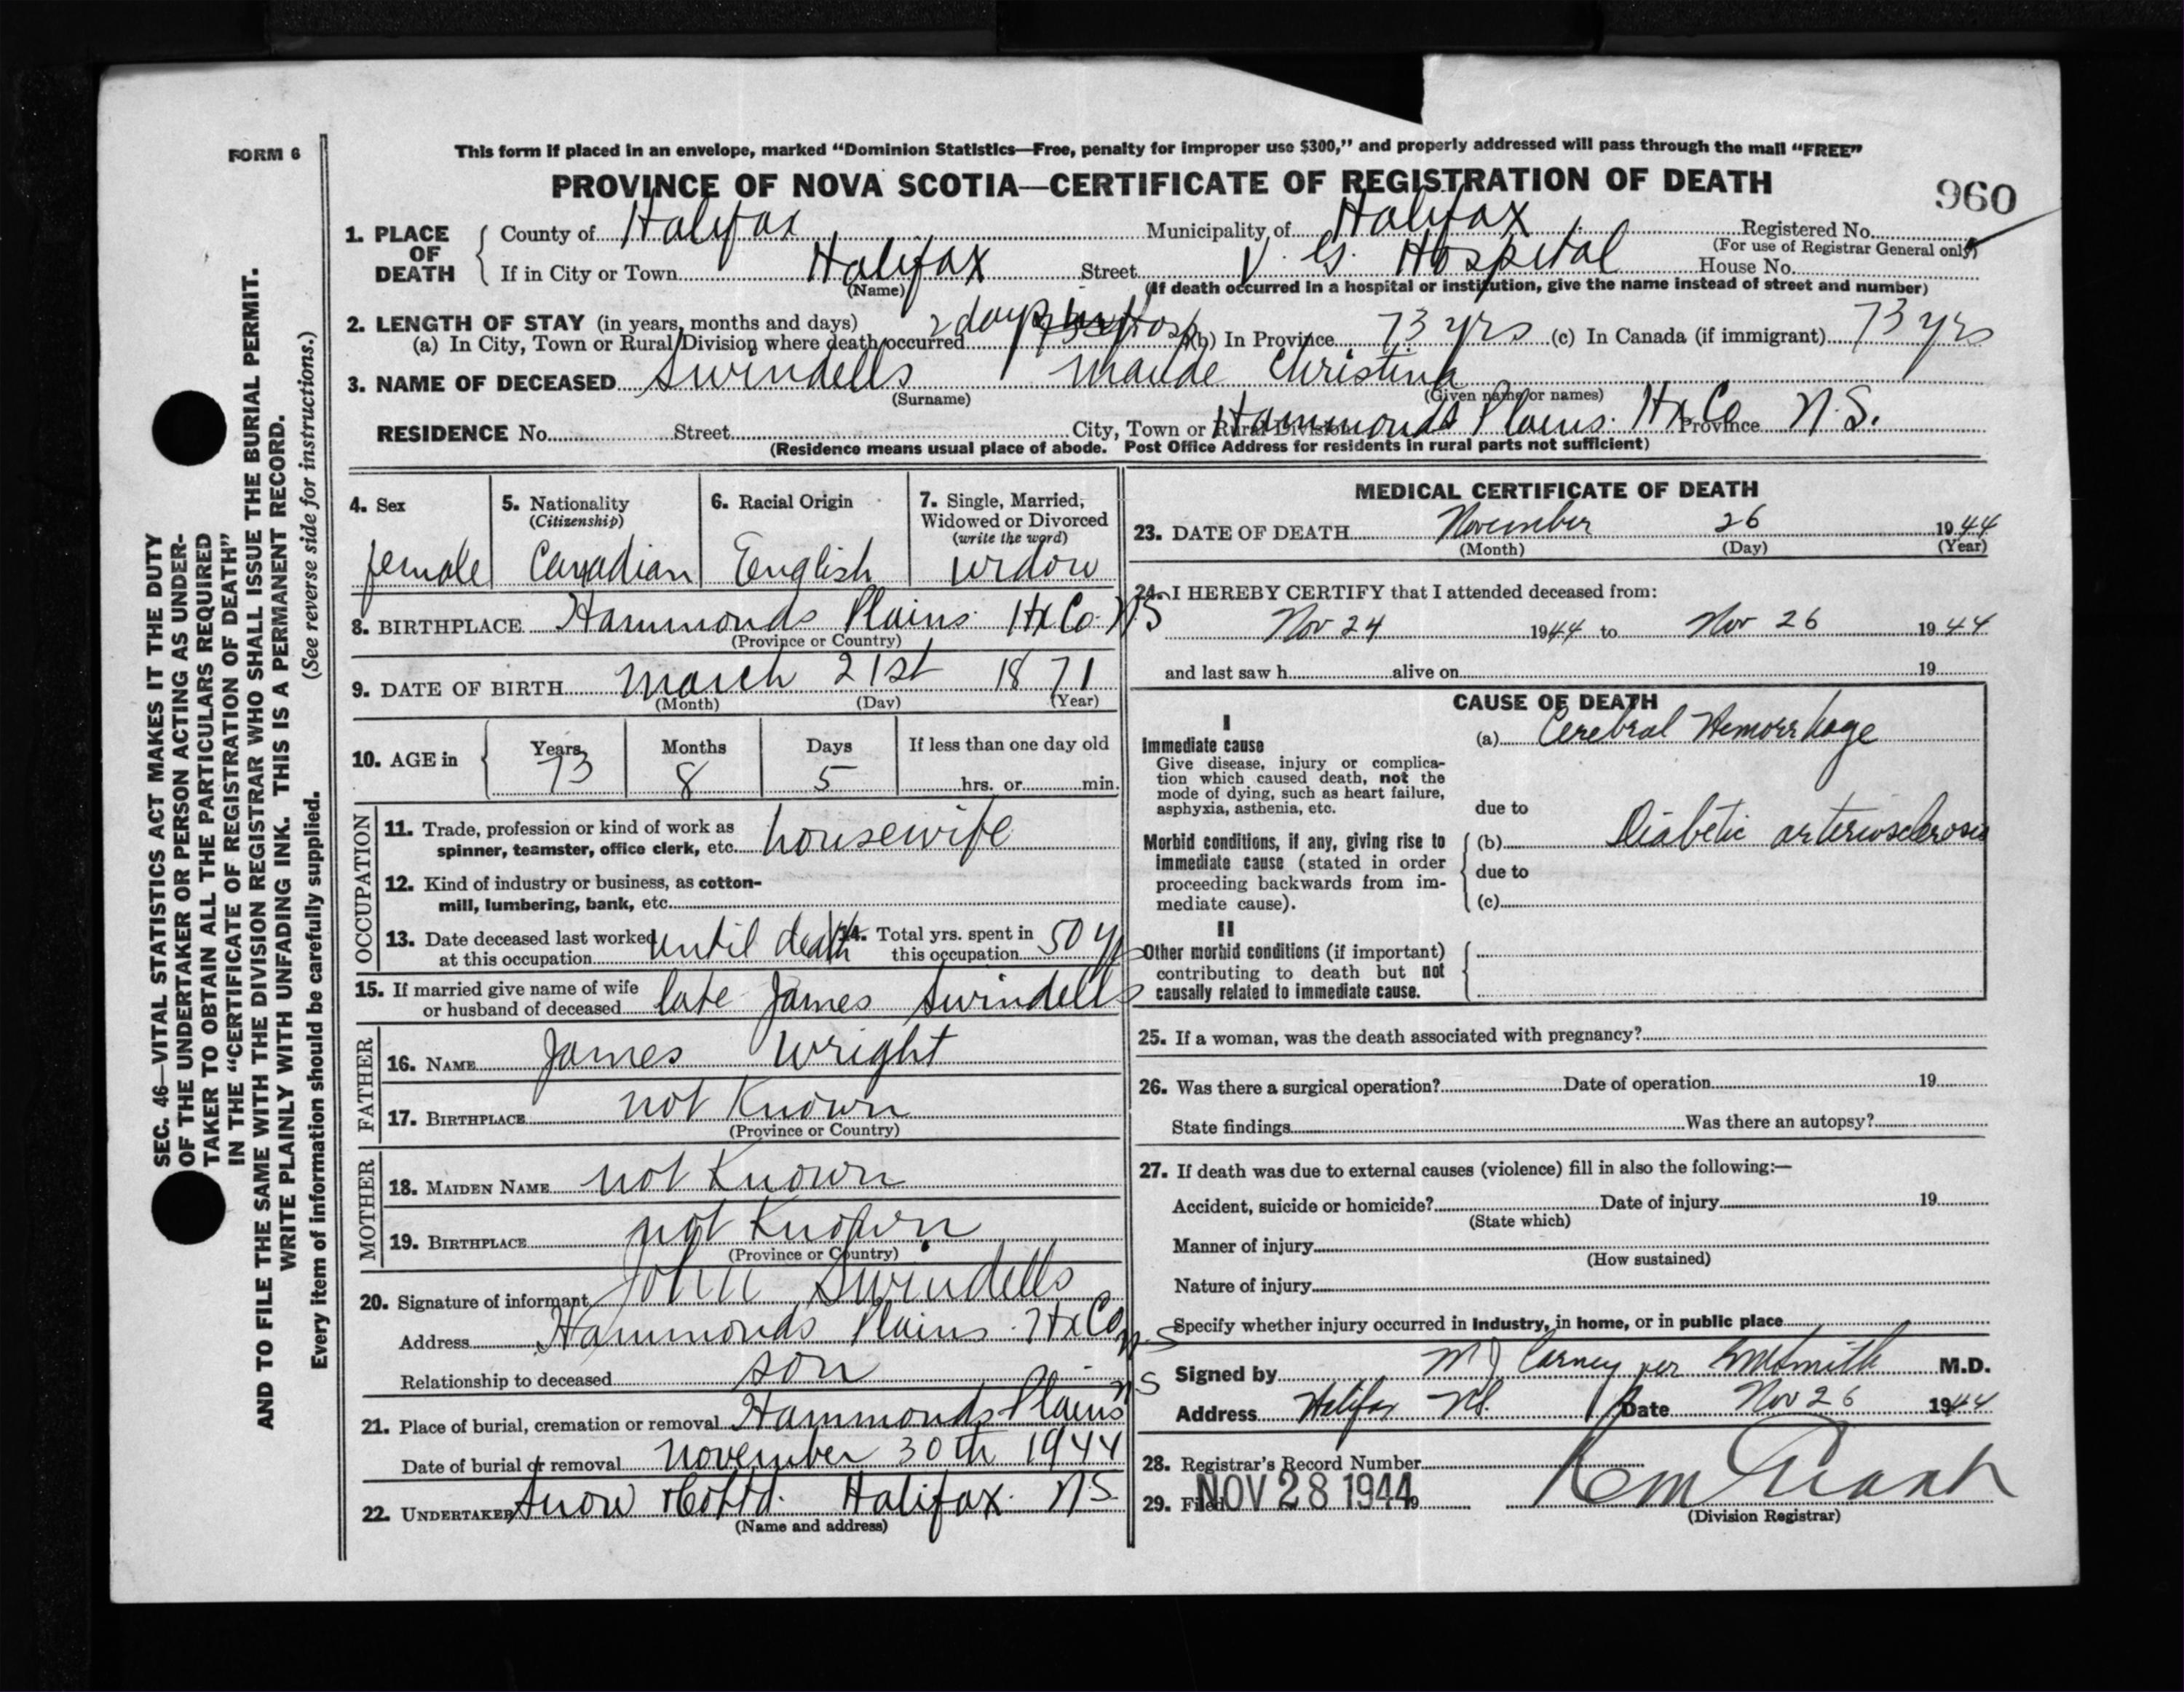 FORM 6
This form if placed in an envelope, marked “Dominion Statistics—Free, penalty for improper use $300,” and properly addressed will pass through the mail “FREE”
PROVINCE OF NOVA SCOTIA—CERTIFICATE OF REGISTRATION OF DEATH
960
1. PLACE OF DEATH
County of Halifax Municipality of Halifax Registered No.
(For use of Registrar General only)
If in City or Town Halifax Street V. G. Hospital House No.
(Name) (If death occurred in a hospital or institution, give the name instead of street and number)
2. LENGTH OF STAY (in years, months and days)
(a) In City, Town or Rural Division where death occurred 2 days Hosp (b) In Province 73 yrs (c) In Canada (if immigrant) 73 yrs
3. NAME OF DECEASED Swindells Maude Christina
(Surname) (Given name or names)
RESIDENCE No. Street City, Town or Rural Division Hammonds Plains. Hx Co Province N.S.
(Residence means usual place of abode. Post Office Address for residents in rural parts not sufficient)
4. Sex
female
5. Nationality
(Citizenship)
Canadian
6. Racial Origin
English
7. Single, Married,
Widowed or Divorced
(write the word)
widow
8. BIRTHPLACE Hammonds Plains Hx Co. N S
(Province or Country)
9. DATE OF BIRTH March 21st 1871
(Month) (Day) (Year)
10. AGE in
Years Months Days If less than one day old
73 8 5 hrs. or min.
OCCUPATION
11. Trade, profession or kind of work as
spinner, teamster, office clerk, etc. housewife
12. Kind of industry or business, as cotton-
mill, lumbering, bank, etc.
13. Date deceased last worked
at this occupation until death
14. Total yrs. spent in
this occupation 50 yrs
15. If married give name of wife
or husband of deceased late James Swindells
FATHER
16. NAME James Wright
17. BIRTHPLACE not Known
(Province or Country)
MOTHER
18. MAIDEN NAME not Known
19. BIRTHPLACE not Known
(Province or Country)
20. Signature of informant John Swindells
Address Hammonds Plains. Hx Co N.S
Relationship to deceased son
21. Place of burial, cremation or removal Hammonds Plains NS
Date of burial or removal November 30th 1944
22. UNDERTAKER Snow & Co Ltd. Halifax. N.S.
(Name and address)
MEDICAL CERTIFICATE OF DEATH
23. DATE OF DEATH November 26 1944
(Month) (Day) (Year)
24. I HEREBY CERTIFY that I attended deceased from:
Nov 24 1944 to Nov 26 1944
and last saw h alive on 19
CAUSE OF DEATH
I
Immediate cause
Give disease, injury or complica-
tion which caused death, not the
mode of dying, such as heart failure,
asphyxia, asthenia, etc.
(a) Cerebral Hemorrhage
due to
Morbid conditions, if any, giving rise to
immediate cause (stated in order
proceeding backwards from im-
mediate cause).
(b) Diabetic arteriosclerosis
due to
(c)
II
Other morbid conditions (if important)
contributing to death but not
causally related to immediate cause.
25. If a woman, was the death associated with pregnancy?
26. Was there a surgical operation? Date of operation 19
State findings Was there an autopsy?
27. If death was due to external causes (violence) fill in also the following:—
Accident, suicide or homicide? Date of injury 19
(State which)
Manner of injury
(How sustained)
Nature of injury
Specify whether injury occurred in industry, in home, or in public place
Signed by M J Carney per Smith M.D.
Address Halifax NS. Date Nov 26 1944
28. Registrar's Record Number
29. Filed NOV 28 1944
(Division Registrar)
SEC. 46—VITAL STATISTICS ACT MAKES IT THE DUTY
OF THE UNDERTAKER OR PERSON ACTING AS UNDER-
TAKER TO OBTAIN ALL THE PARTICULARS REQUIRED
IN THE “CERTIFICATE OF REGISTRATION OF DEATH”
AND TO FILE THE SAME WITH THE DIVISION REGISTRAR WHO SHALL ISSUE THE BURIAL PERMIT.
WRITE PLAINLY WITH UNFADING INK. THIS IS A PERMANENT RECORD.
Every item of information should be carefully supplied. (See reverse side for instructions.)